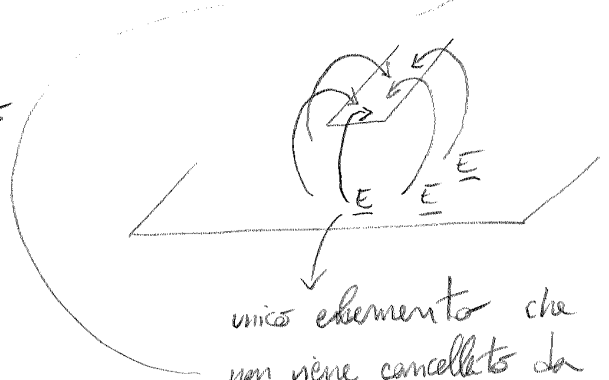 E
E
E
unico elemento che
non viene cancellato da